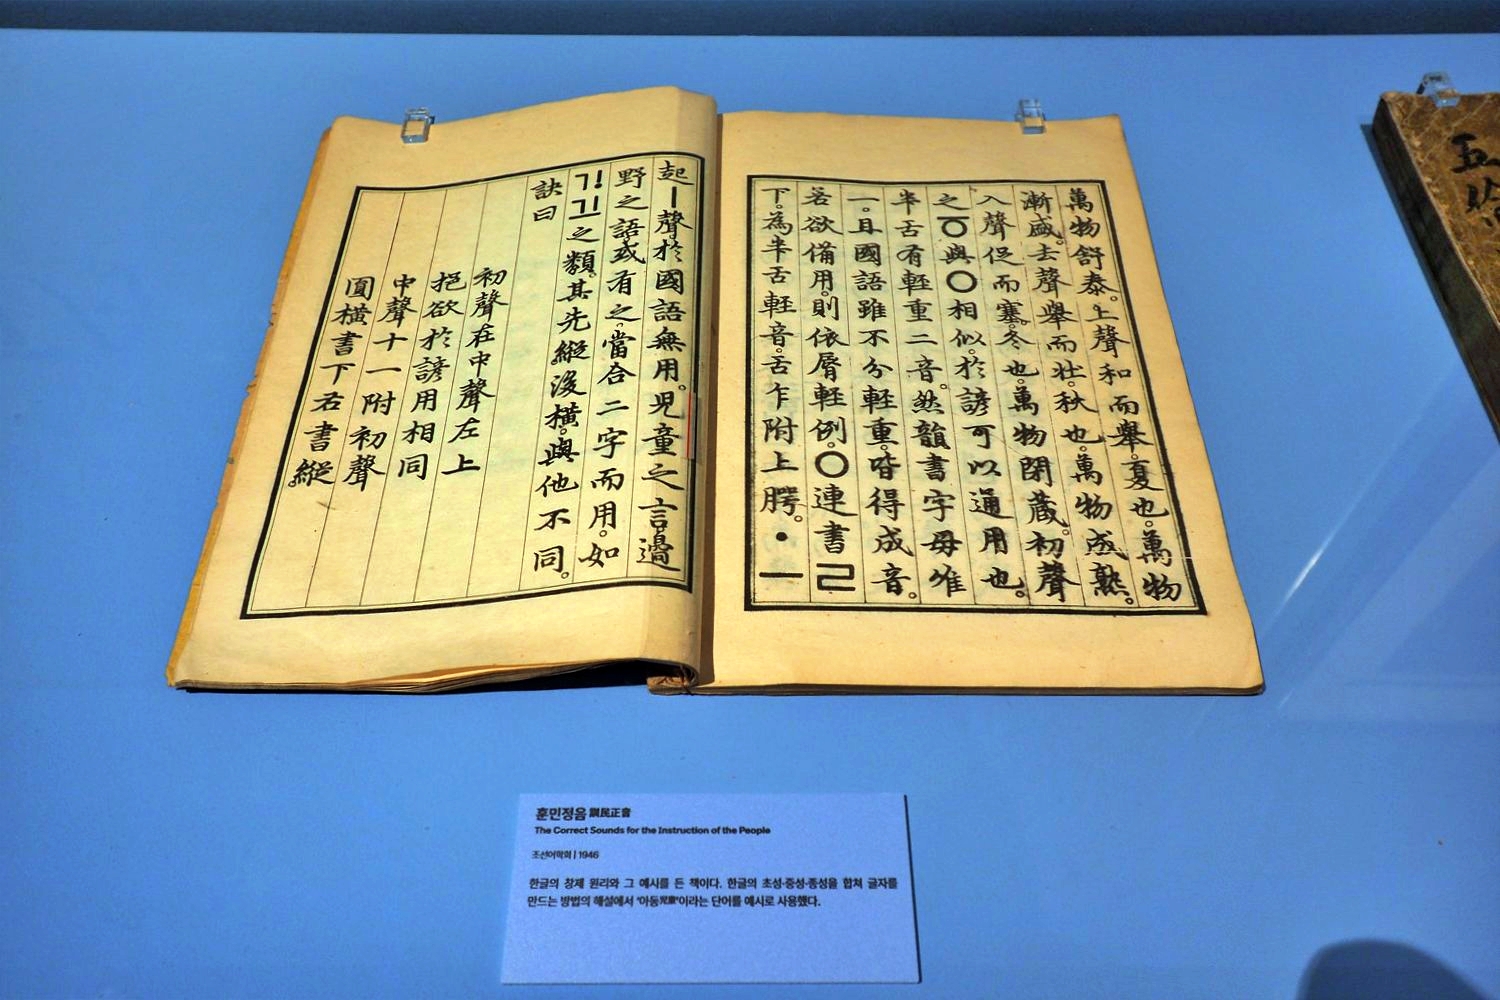 萬物舒泰。上聲和而舉。夏也。萬物
漸盛。去聲舉而壯。秋也。萬物成熟。
入聲促而塞。冬也。萬物閉藏。初聲
之ㆆ與ㅇ相似。於諺可以通用也。
半舌有輕重二音。然韻書字母唯
一。且國語雖不分輕重。皆得成音。
若欲備用。則依脣輕例。ㅇ連書ㄹ
下。為半舌輕音。舌乍附上腭。ㆍㅡ
起ㅣ聲。於國語無用。兒童之言。邊
野之語。或有之。當合二字而用。如
ᄀᆝᄀᆜ之類。其先縱後橫。與他不同。
訣曰
初聲在中聲左上
挹欲於諺用相同
中聲十一附初聲
圓橫書下右書縱
五倫
훈민정음 訓民正音
The Correct Sounds for the Instruction of the People
조선어학회 | 1946
한글의 창제 원리와 그 예시를 든 책이다. 한글의 초성·중성·종성을 합쳐 글자를
만드는 방법의 해설에서 '아동兒童'이라는 단어를 예시로 사용했다.